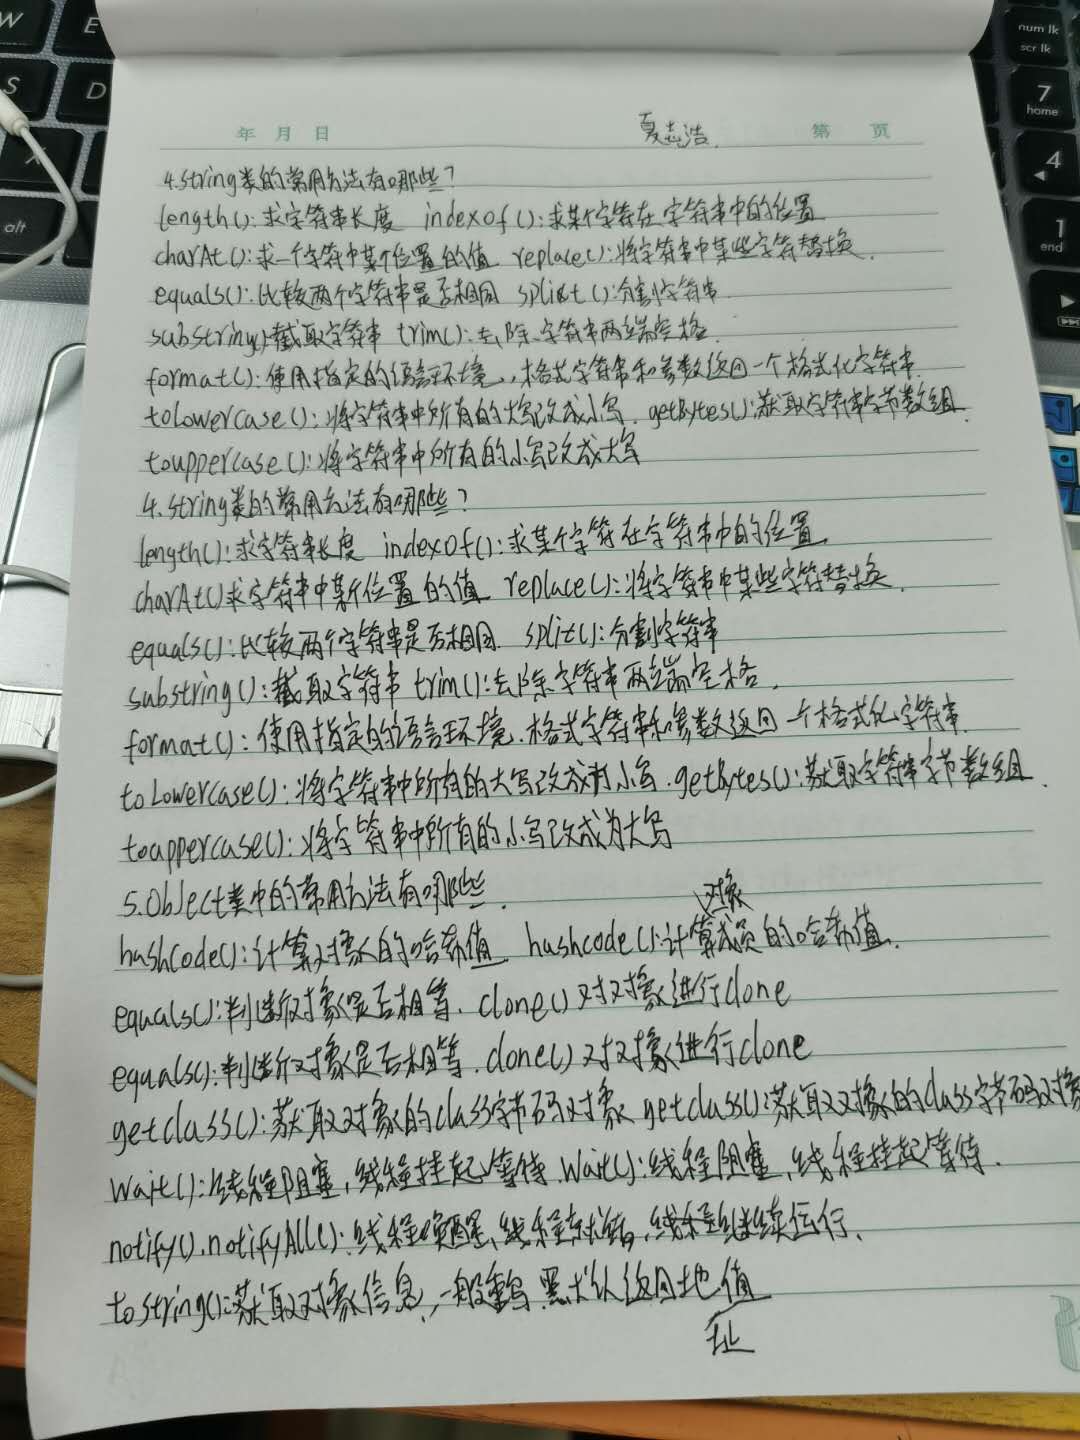 W E
S D
X
alt
num lk
scr lk
7
home
4
1
end
年 月 日 夏志浩. 第 页
4.string类的常用方法有哪些?
length():求字符串长度 indexof():求某个字符在字符串中的位置
charAt():求一个字符中某个位置的值 replace():将字符串中某些字符替换.
equals():比较两个字符串是否相同 split():分割字符串.
substring()截取字符串 trim():去除字符串两端空格.
format():使用指定的语言环境,格式字符串和参数返回一个格式化字符串.
toLowercase():将字符串中所有的大写改成小写. getBytes():获取字符串字节数组.
touppercase():将字符串中所有的小写改成大写
4.string类的常用方法有哪些?
length():求字符串长度 indexof():求某个字符在字符串中的位置.
charAt()求字符串中某个位置的值 replace():将字符串中某些字符替换.
equals():比较两个字符串是否相同 split():分割字符串
substring():截取字符串 trim():去除字符串两端空格.
format():使用指定的语言环境.格式字符串和参数返回一个格式化字符串.
toLowercase():将字符串中所有的大写改成为小写.getBytes():获取字符串字节数组.
touppercase():将字符串中所有的小写改成为大写
5.Object类中的常用方法有哪些.
对象
hashCode():计算对象的哈希值 hashcode():计算成员的哈希值.
equals():判断对象是否相等. clone()对对象进行clone
equals():判断对象是否相等.clone()对对象进行clone
getclass():获取对象的class字节码对象 getclass():获取对象的class字节码对象
wait():线程阻塞,线程挂起等待.wait():线程阻塞,线程挂起等待.
notify().notifyAll():线程唤醒,线程就绪,线程继续运行.
tostring():获取对象信息,一般重写 默认返回地值
址